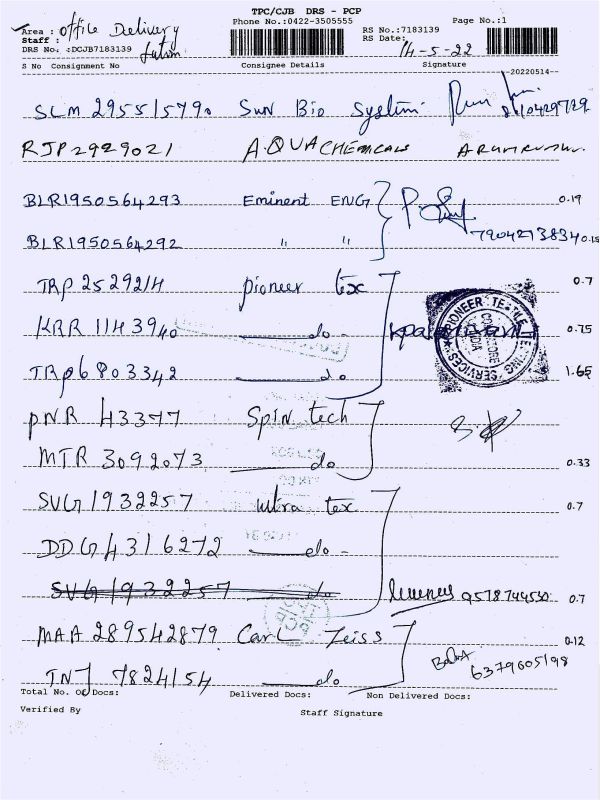 TPC/CJB DRS - PCP
Area : office Delivery
Phone No.:0422-3505555
Page No.:1
Staff :
RS No.:7183139
DRS No. :DCJB7183139
RS Date:
14-5-22
S No Consignment No Consignee Details Signature
--20220514--
SLM 295515790 Sun Bio System
RJP2929021 AQUACHEMICALS
BLR1950564293 Eminent ENG 0.19
BLR1950564292 " " 7904213834 0.15
TRP 2529214 pioneer tex 0.7
PIONEER TEXTILE TESTING SERVICES COIMBATORE INDIA
KRR 1143940 do 0.75
TRP6803342 do 1.65
PNR 43377 Spin tech
MTR 3092073 do 0.33
SVG1932257 ultra tex 0.7
DDG4316272 do
SVG1932257 do 9578744530 0.7
MAA 289542879 Carl Zeiss 0.12
TNJ 7824154 do 6379605198
Total No. Of Docs: Delivered Docs: Non Delivered Docs:
Verified By Staff Signature